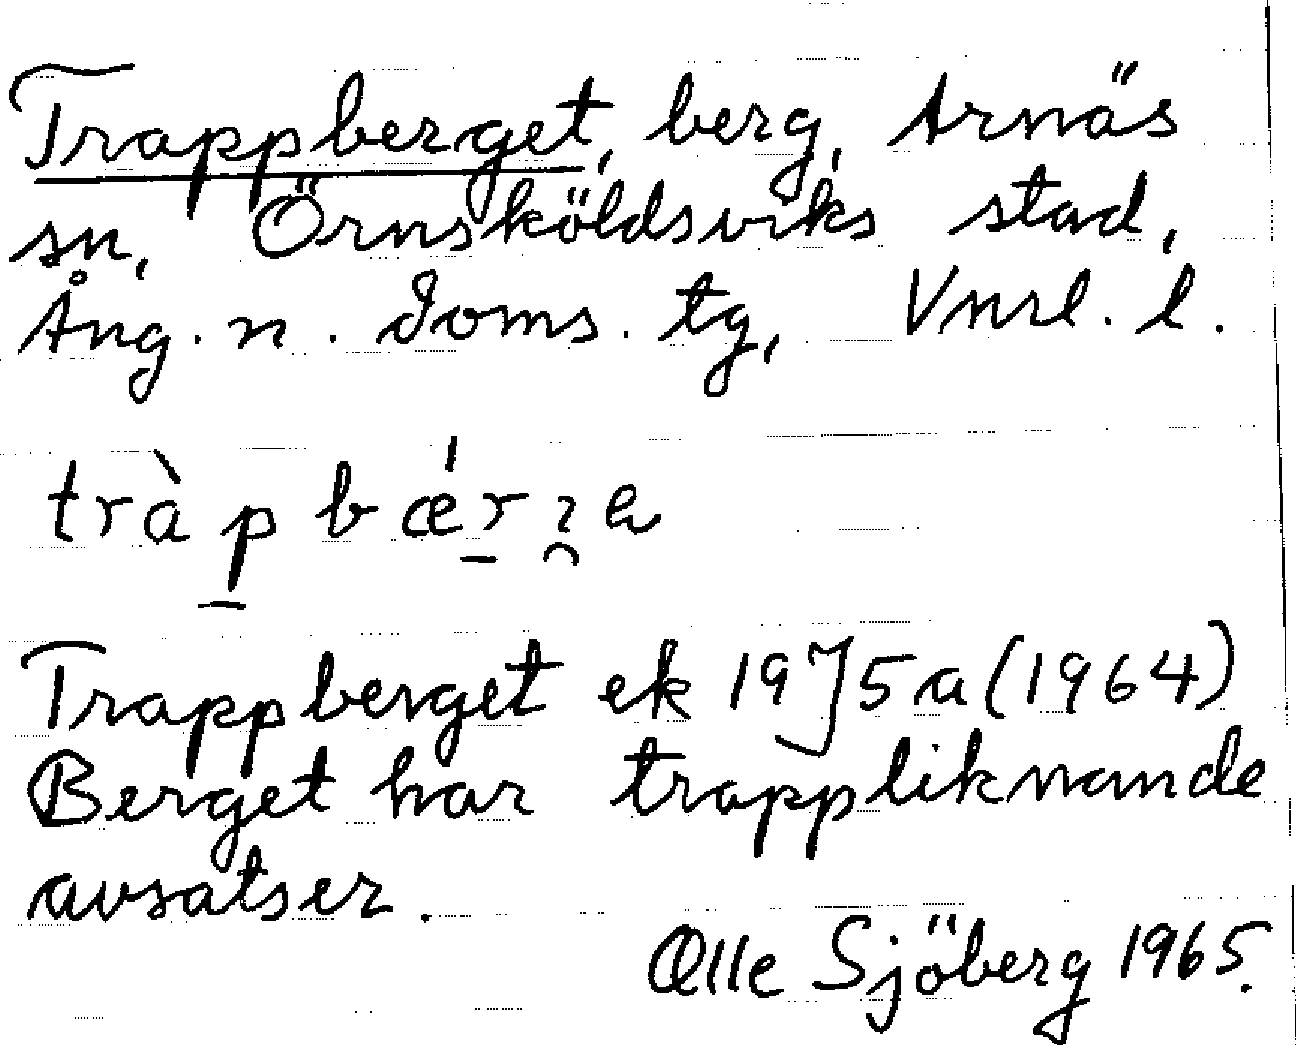 Trappberget, berg, Arnäs
sn, Örnsköldsviks stad,
Ång. n. doms. tg, Vnrl. l.
Trappberget ek 19J5a (1964)
Berget har trappliknande
avsatser.
Olle Sjöberg 1965.